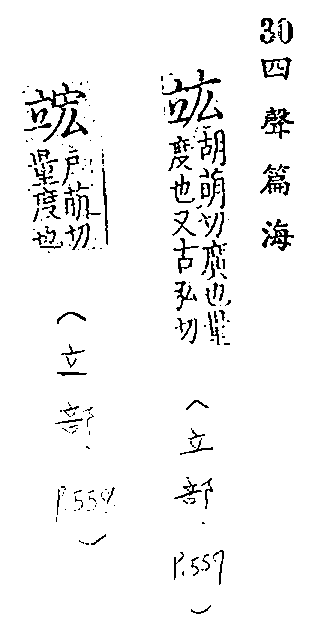 30四聲篇海
竑胡萌切廣也量
度也又古弘切
(立部.P.557)
竤戶萌切
量度也
(立部.P.559.)